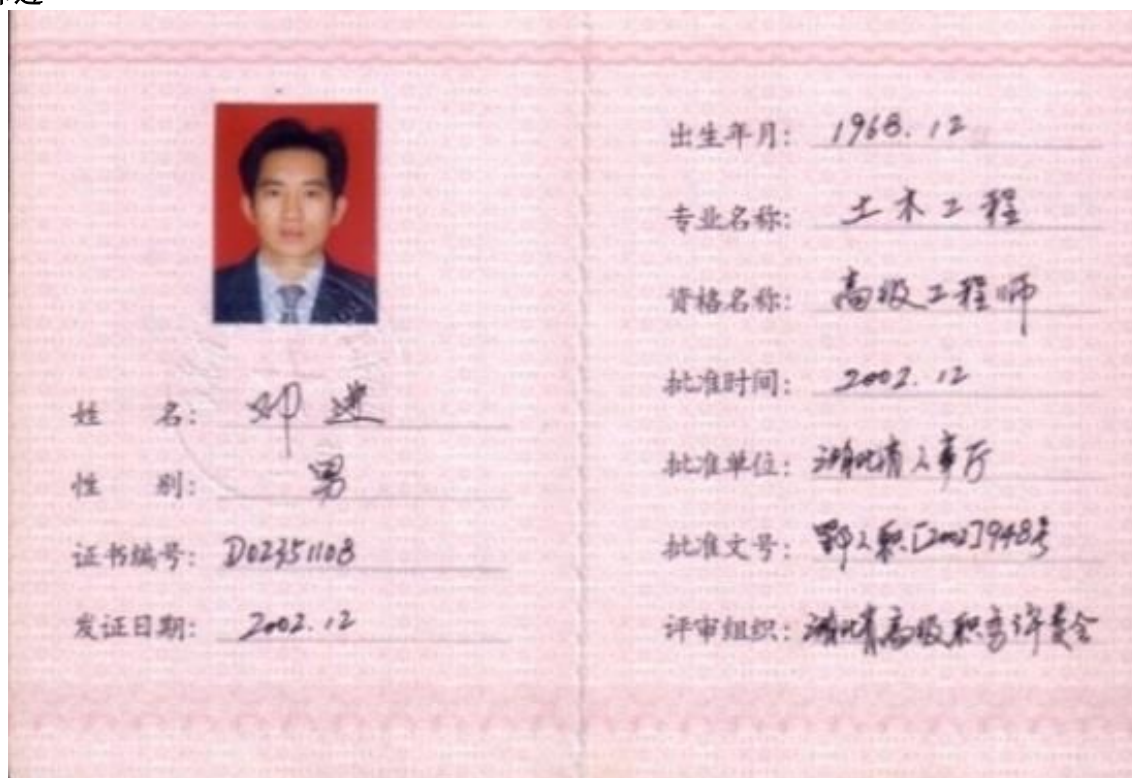 姓 名: 邓建
性 别: 男
证书编号: D02351108
发证日期: 2002.12
出生年月: 1968.12
专业名称: 土木工程
资格名称: 高级工程师
批准时间: 2002.12
批准单位: 湖北省人事厅
批准文号: 鄂人职[2002]948号
评审组织: 湖北省高级职务评委会